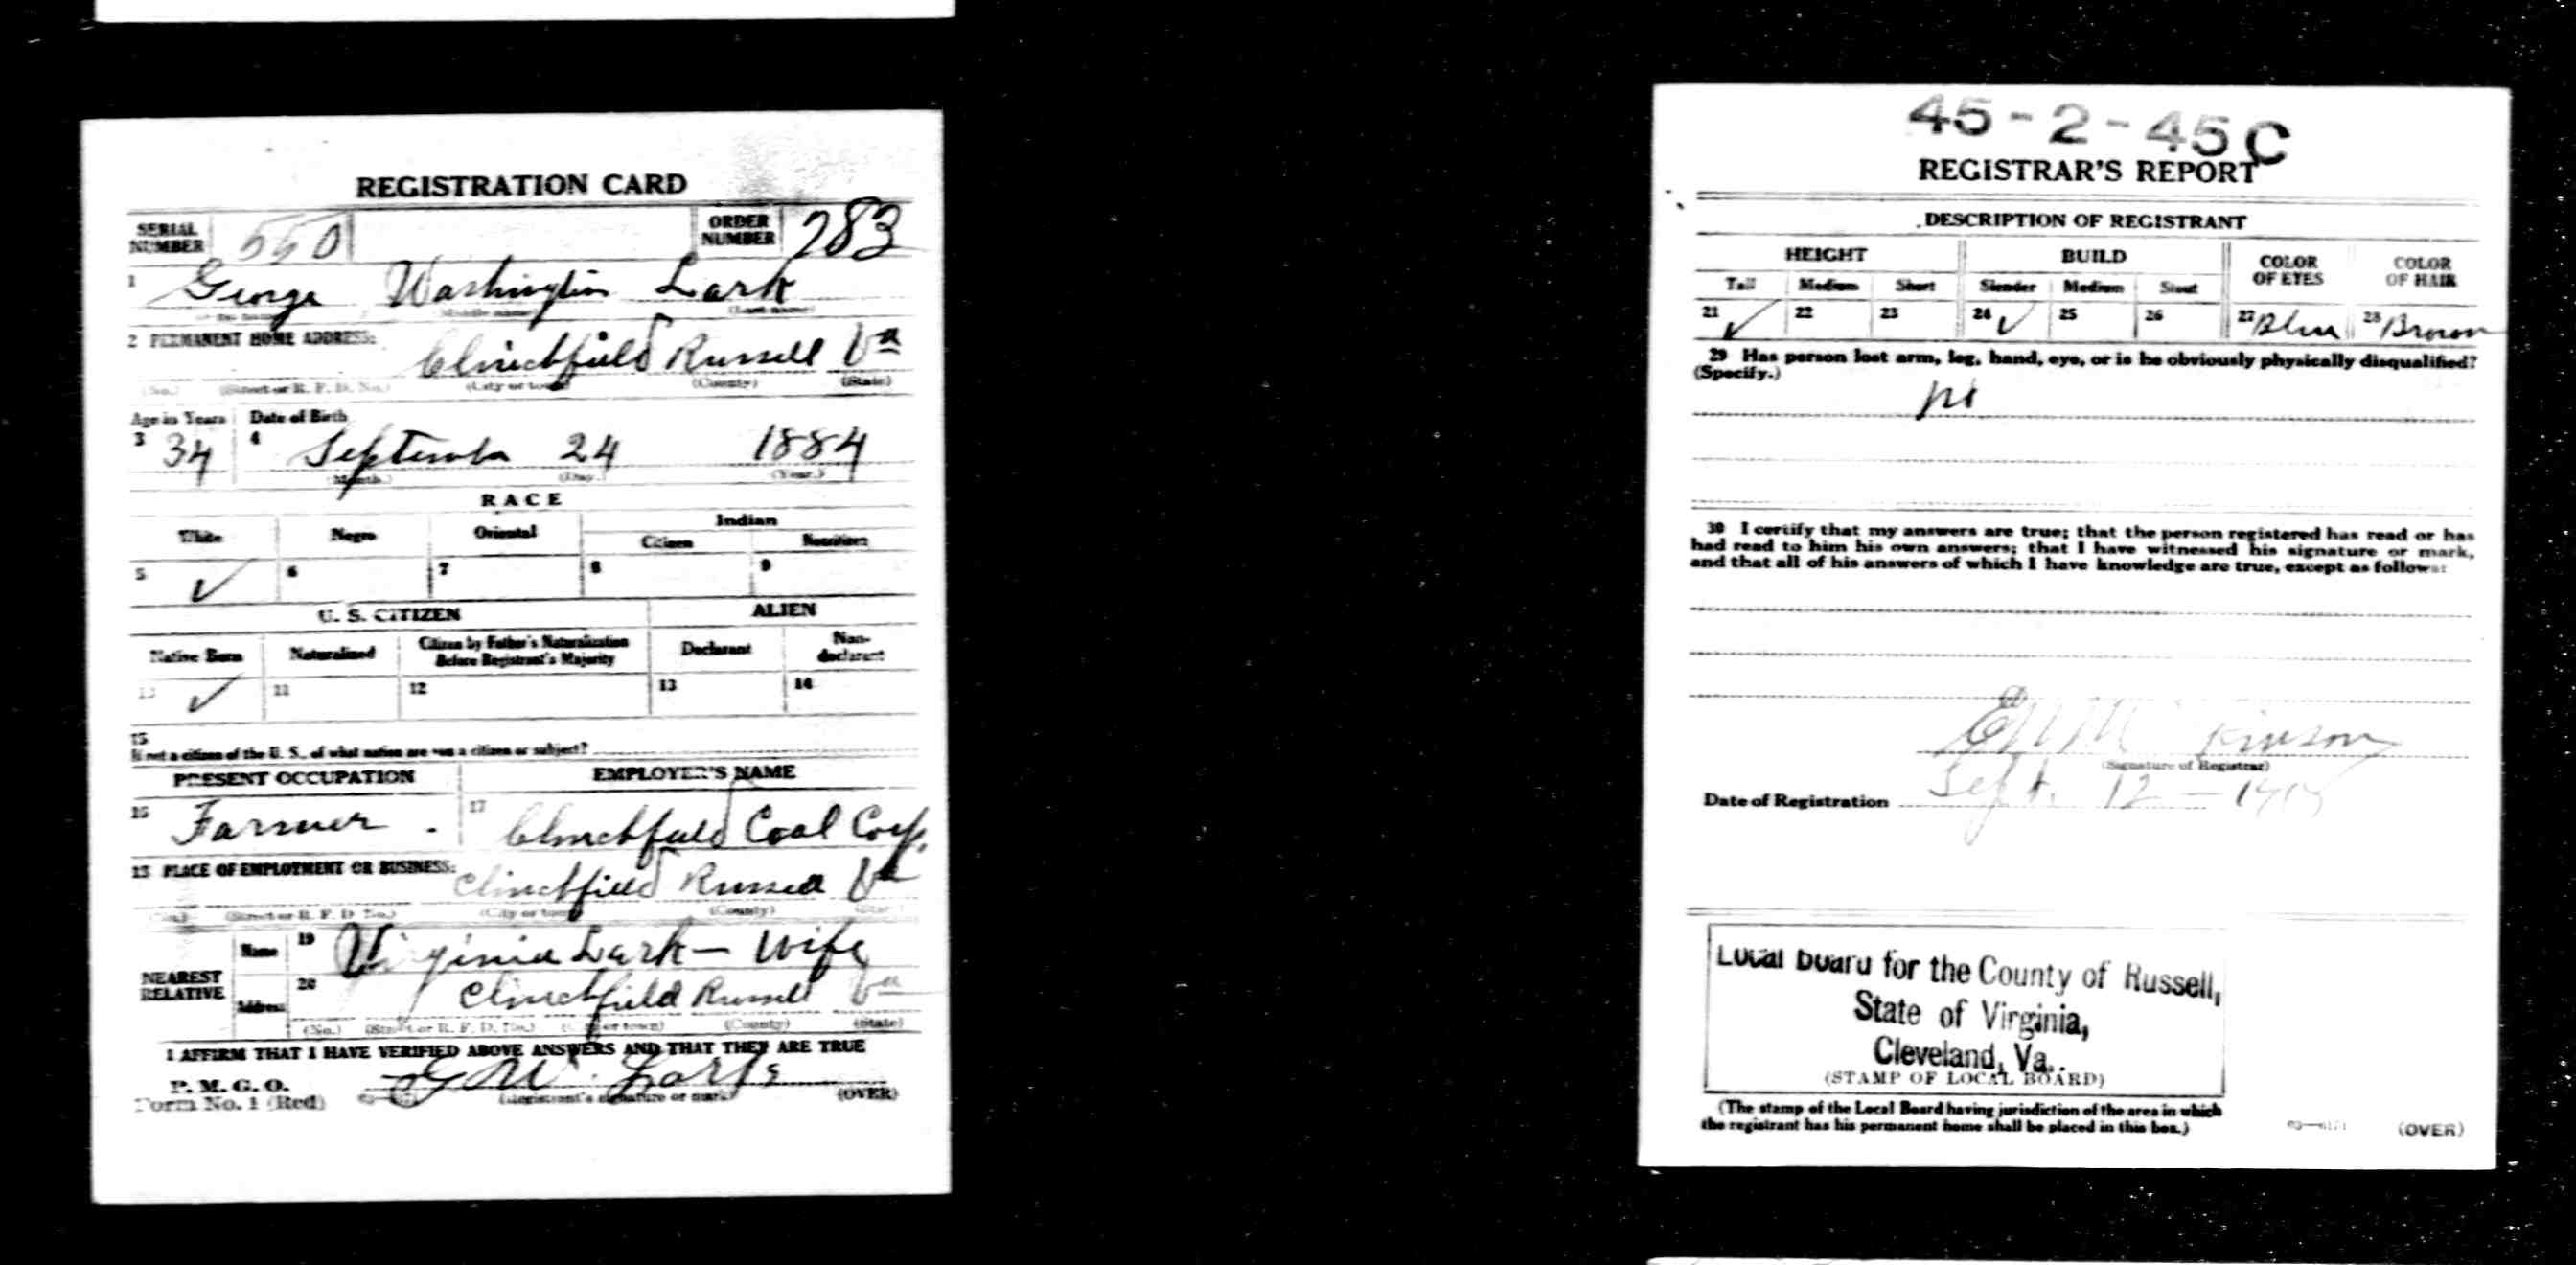 REGISTRATION CARD
SERIAL NUMBER 550 ORDER NUMBER 283
1 George Washington Lark
(Middle name) (Last name)
2 PERMANENT HOME ADDRESS: Clinchfield Russell Va
(No.) (Street or R. F. D. No.) (City or town) (County) (State)
Age in Years Date of Birth
3 34 4 September 24 1884
(Month.) (Day.) (Year.)
RACE
White Negro Oriental Indian
Citizen Noncitizen
5 ✓ 6 7 8 9
U. S. CITIZEN ALIEN
Native Born Naturalized Citizen by Father's Naturalization Before Registrant's Majority Declarant Non-declarant
10 ✓ 11 12 13 14
15
If not a citizen of the U. S., of what nation are you a citizen or subject?
PRESENT OCCUPATION EMPLOYER'S NAME
16 Farmer 17 Clinchfield Coal Corp.
18 PLACE OF EMPLOYMENT OR BUSINESS: Clinchfield Russell Va
(No.) (Street or R. F. D. No.) (City or town) (County) (State)
NEAREST RELATIVE Name 19 Virginia Lark — Wife
Address 20 Clinchfield Russell Va
(No.) (Street or R. F. D. No.) (City or town) (County) (State)
I AFFIRM THAT I HAVE VERIFIED ABOVE ANSWERS AND THAT THEY ARE TRUE
P. M. G. O.
Form No. 1 (Red) G W. Lark
(Registrant's signature or mark) (OVER)
45-2-45 C
REGISTRAR'S REPORT
DESCRIPTION OF REGISTRANT
HEIGHT BUILD COLOR OF EYES COLOR OF HAIR
Tall Medium Short Slender Medium Stout
21 ✓ 22 23 24 ✓ 25 26 27 Blue 28 Brown
29 Has person lost arm, leg, hand, eye, or is he obviously physically disqualified?
(Specify.)
no
30 I certify that my answers are true; that the person registered has read or has
had read to him his own answers; that I have witnessed his signature or mark,
and that all of his answers of which I have knowledge are true, except as follows:
(Signature of Registrar)
Date of Registration Sept. 12 – 1918
Local Board for the County of Russell,
State of Virginia,
Cleveland, Va.
(STAMP OF LOCAL BOARD)
(The stamp of the Local Board having jurisdiction of the area in which
the registrant has his permanent home shall be placed in this box.)
(OVER)